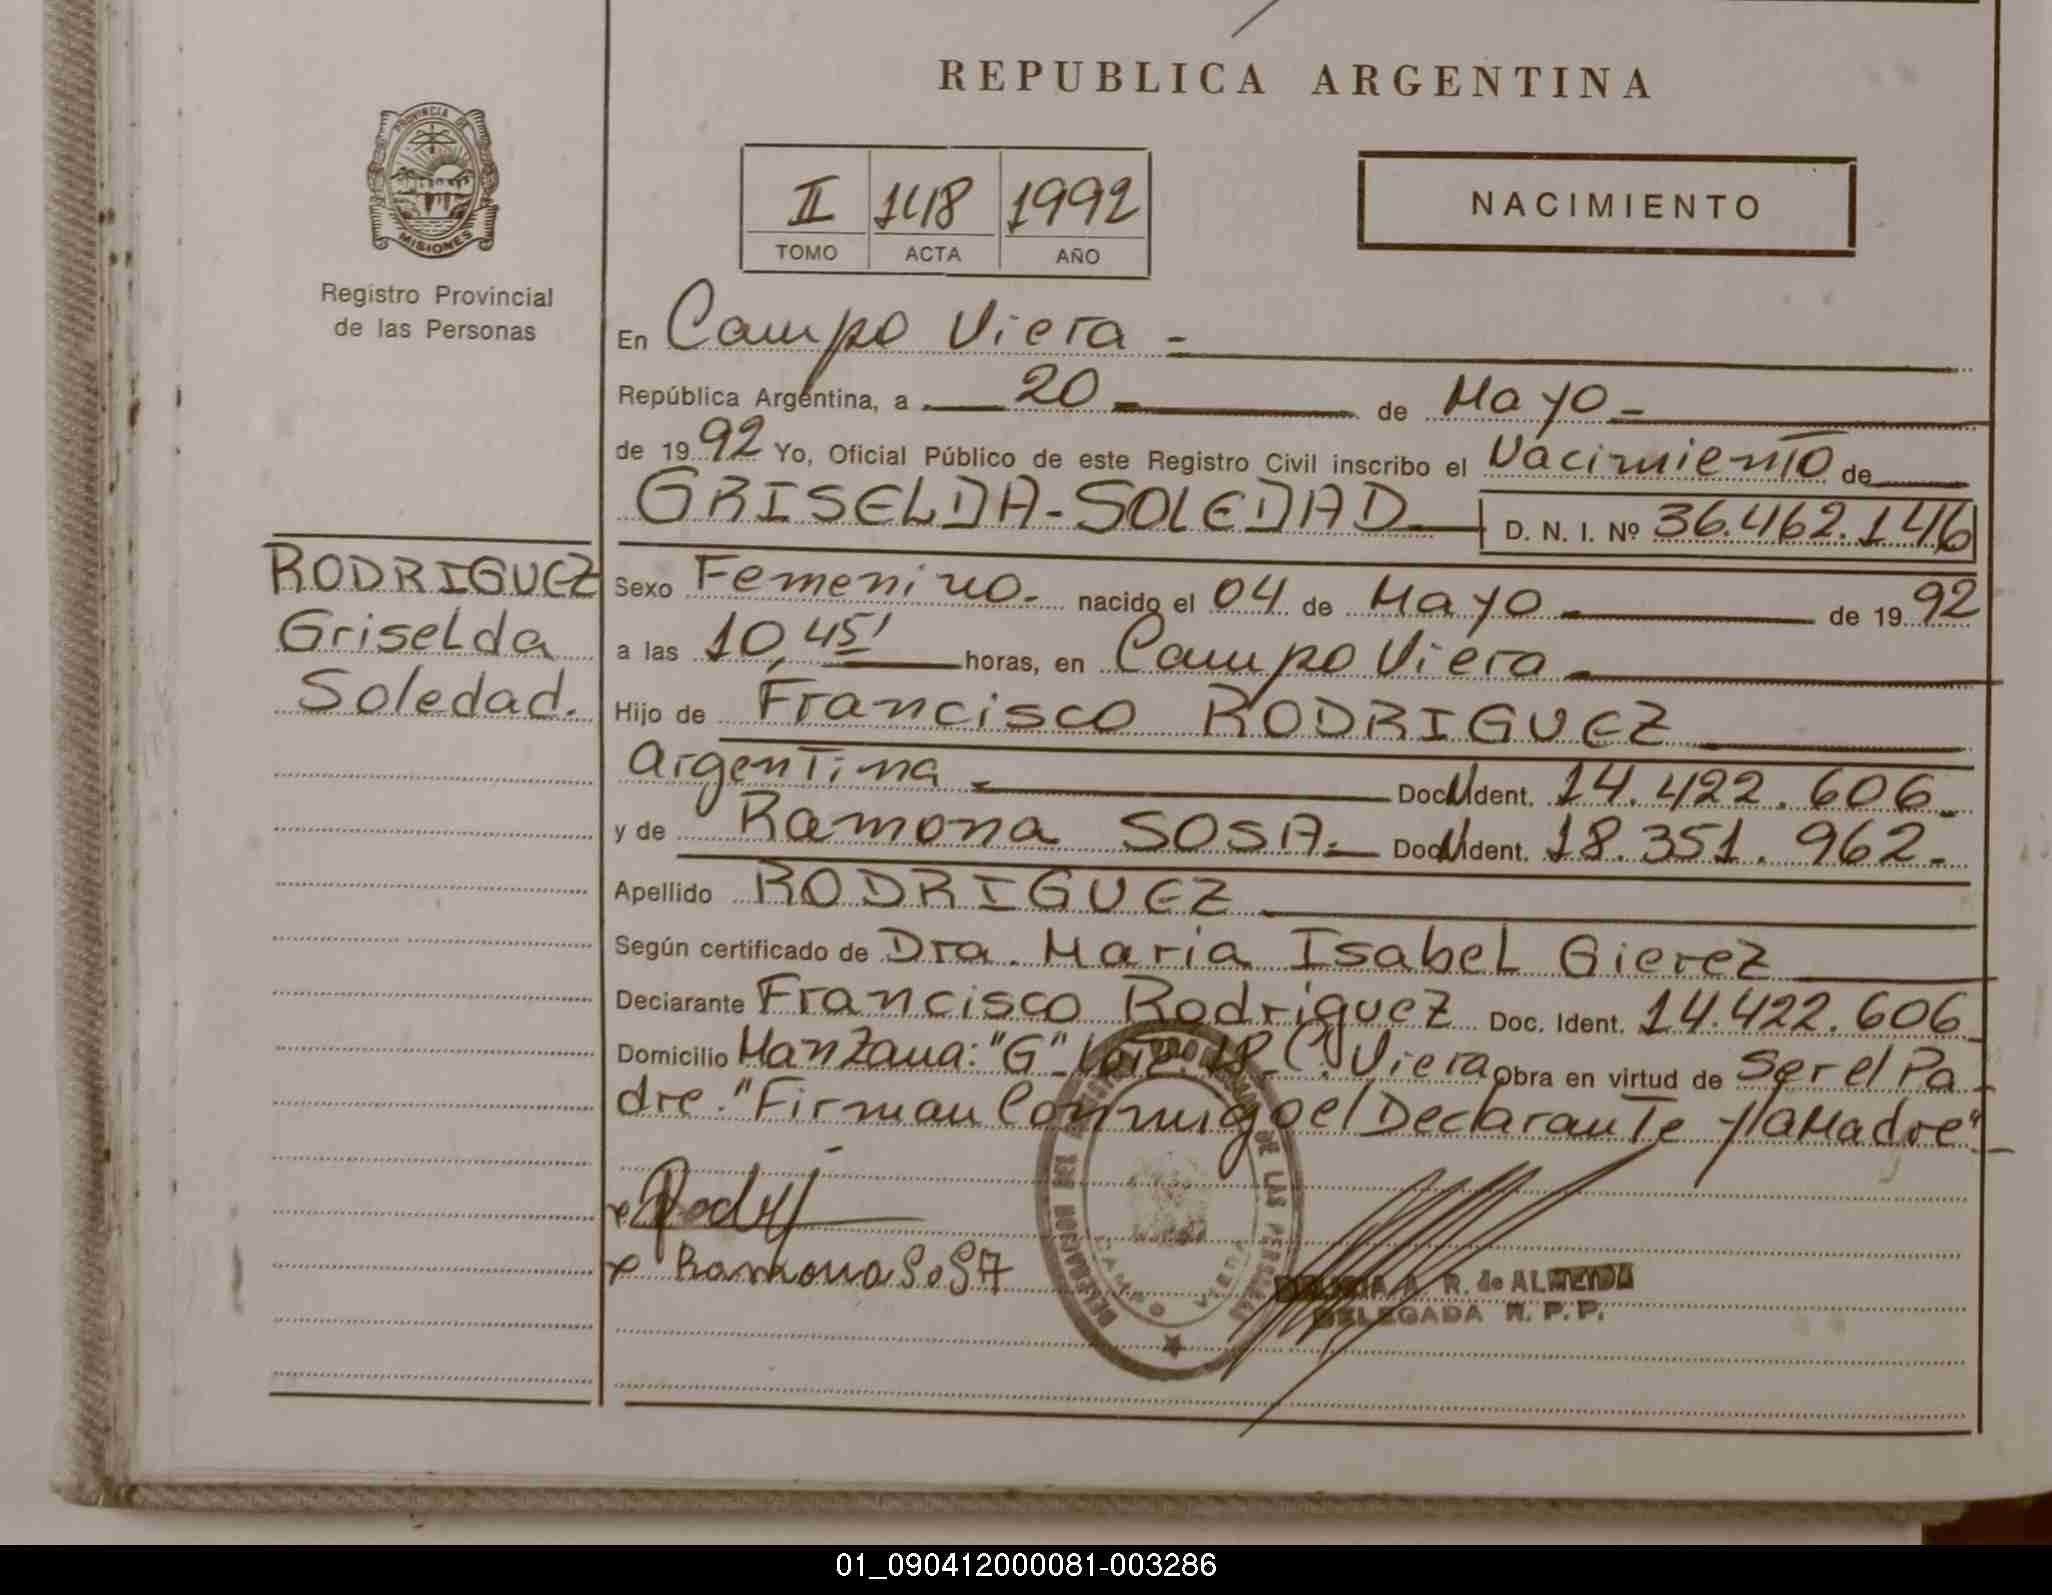 REPUBLICA ARGENTINA
PROVINCIA DE
MISIONES
Registro Provincial
de las Personas
II 148 1992
TOMO ACTA AÑO
NACIMIENTO
En Campo Viera -
República Argentina, a 20 de Mayo -
de 1992 Yo, Oficial Público de este Registro Civil inscribo el Nacimiento de
GRISELDA-SOLEDAD D. N. I. Nº 36.462.146
RODRIGUEZ
Griselda
Soledad.
Sexo Femenino. nacido el 04 de Mayo de 1992
a las 10,45' horas, en Campo Viera
Hijo de Francisco RODRIGUEZ
Argentina - Doc. Ident. 14.422.606-
y de Ramona SOSA.- Doc. Ident. 18.351.962-
Apellido RODRIGUEZ
Según certificado de Dra. Maria Isabel Gierez
Declarante Francisco Rodriguez Doc. Ident. 14.422.606
Domicilio Manzana: "G" Lote 18 C. Viera Obra en virtud de Ser el Pa-
dre. "Firman Conmigo el Declarante y la Madre"-
x Rodri
x Ramona SoSA
DELEGACION DEL REGISTRO PROVINCIAL DE LAS PERSONAS
CAMPO VIERA
A. R. de ALMEIDA
DELEGADA R. P. P.
01_090412000081-003286